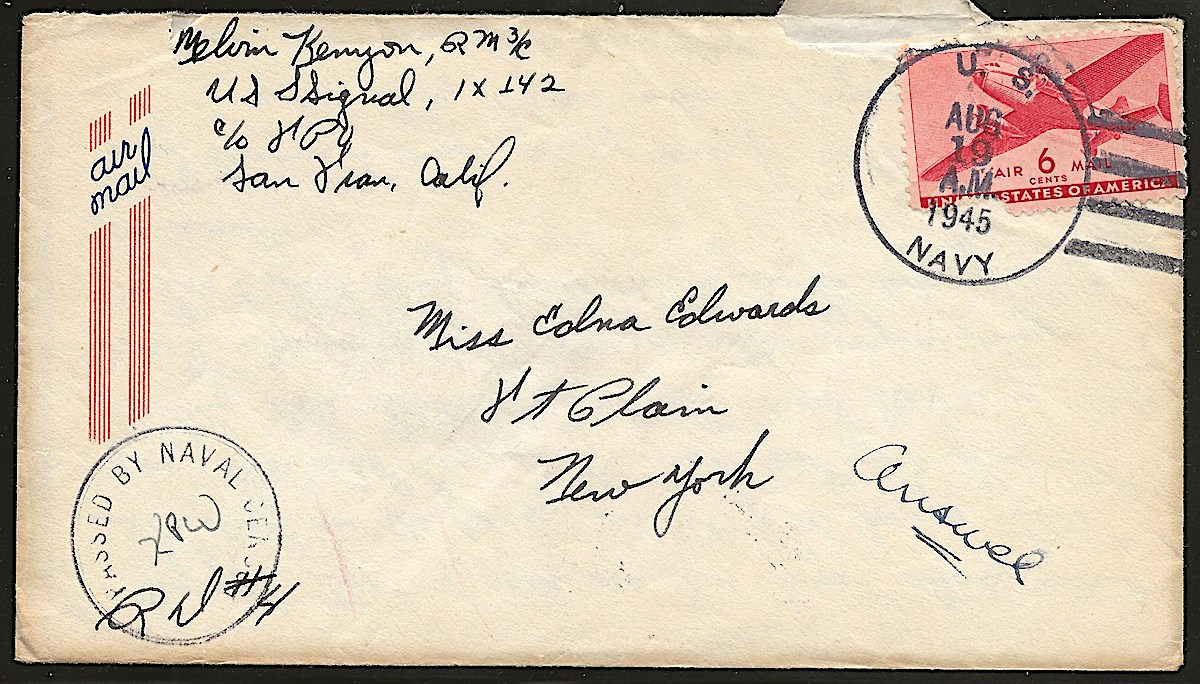 Melvin Kenyon, RM 3/c
USS Signal, IX 142
c/o FPO
San Fran, Calif.
air
mail
U. S.
AUG
19
A.M.
1945
NAVY
AIR 6 MAIL
CENTS
UNITED STATES OF AMERICA
Miss Edna Edwards
Ft Plain
New York
Answer
PASSED BY NAVAL CENSOR
Rd #4